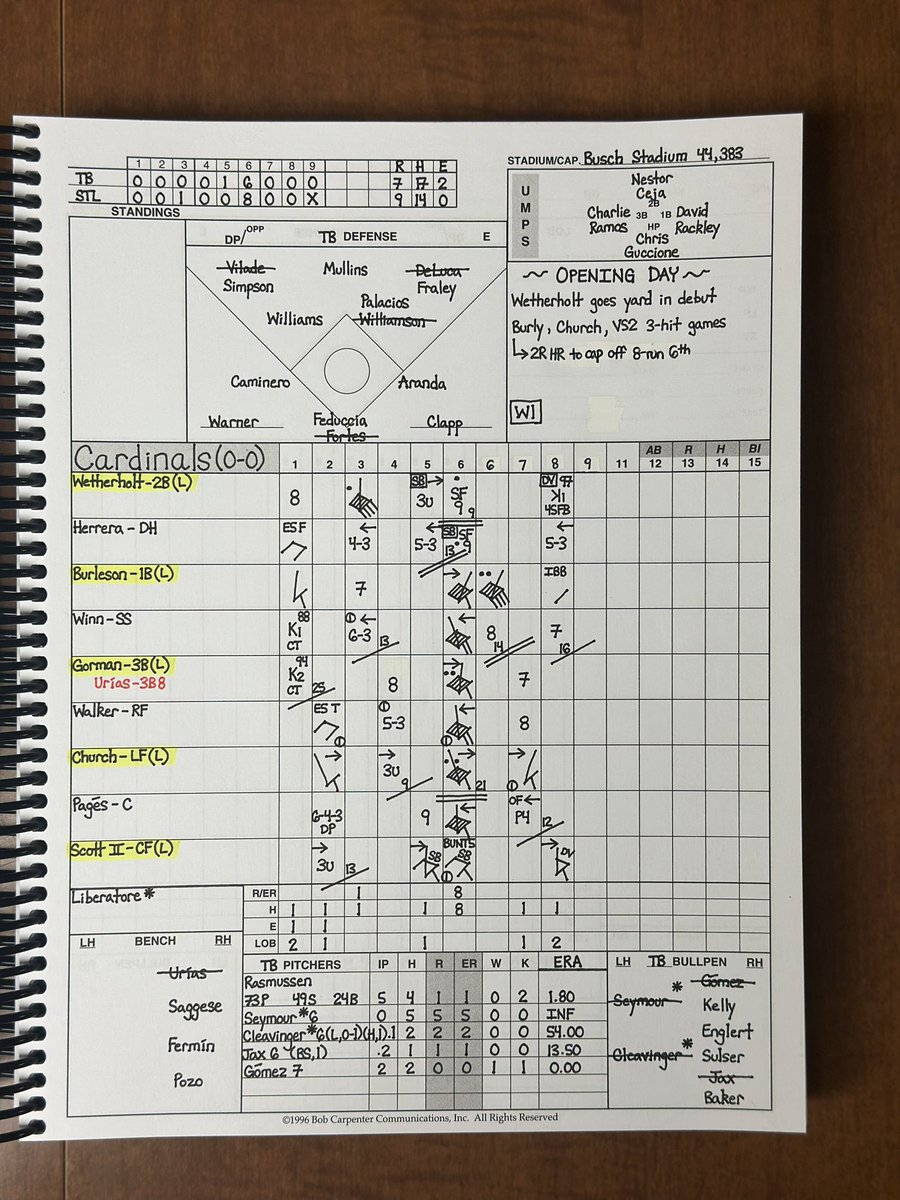 1 2 3 4 5 6 7 8 9 R H E
TB 0 0 0 0 1 6 0 0 0 7 17 2
STL 0 0 1 0 0 8 0 0 X 9 14 0
STANDINGS
STADIUM/CAP. Busch Stadium 44,383
UMPS
Nestor
Ceja
2B
Charlie 3B 1B David
Ramos HP Rackley
Chris
Guccione
DP/OPP TB DEFENSE E
Vilade Mullins DeLuca
Simpson Fraley
Palacios
Williams Williamson
Caminero Aranda
Warner Feduccia Clapp
Fortes
~ OPENING DAY ~
Wetherholt goes yard in debut
Burly, Church, VS2 3-hit games
↳2R HR to cap off 8-run 6th
W1
Cardinals (0-0) 1 2 3 4 5 6 6 7 8 9 11 AB 12 R 13 H 14 BI 15
Wetherholt-2B(L) 8 SB 3U SF 9 9 DV 97 K1 4SFB
Herrera-DH ESF 4-3 5-3 SB SF 9 13 5-3
Burleson-1B(L) 7 IBB
Winn-SS 88 K1 CT 6-3 13 8 14 7 16
Gorman-3B(L) 94 K2 CT 25 8 7
Urías-3B8
Walker-RF EST 1 5-3 1 8
Church-LF(L) 3U 9 21 1
Pagés-C 6-4-3 DP 9 OF P4 12
Scott II-CF(L) 3U 13 SB BUNTS SB 1 DV
Liberatore*
R/ER 1 8
H 1 1 1 1 8 1 1
E 1 1
LOB 2 1 1 1 2
LH BENCH RH
Urías
Saggese
Fermín
Pozo
TB PITCHERS IP H R ER W K ERA
Rasmussen
73P 49S 24B 5 4 1 1 0 2 1.80
Seymour*6 0 5 5 5 0 0 INF
Cleavinger*6(L,0-1)(H,1) .1 2 2 2 0 0 54.00
Jax 6 (BS,1) .2 1 1 1 0 0 13.50
Gómez 7 2 2 0 0 1 1 0.00
LH TB BULLPEN RH
Gómez
Seymour* Kelly
Englert
Cleavinger* Sulser
Jax
Baker
©1996 Bob Carpenter Communications, Inc. All Rights Reserved